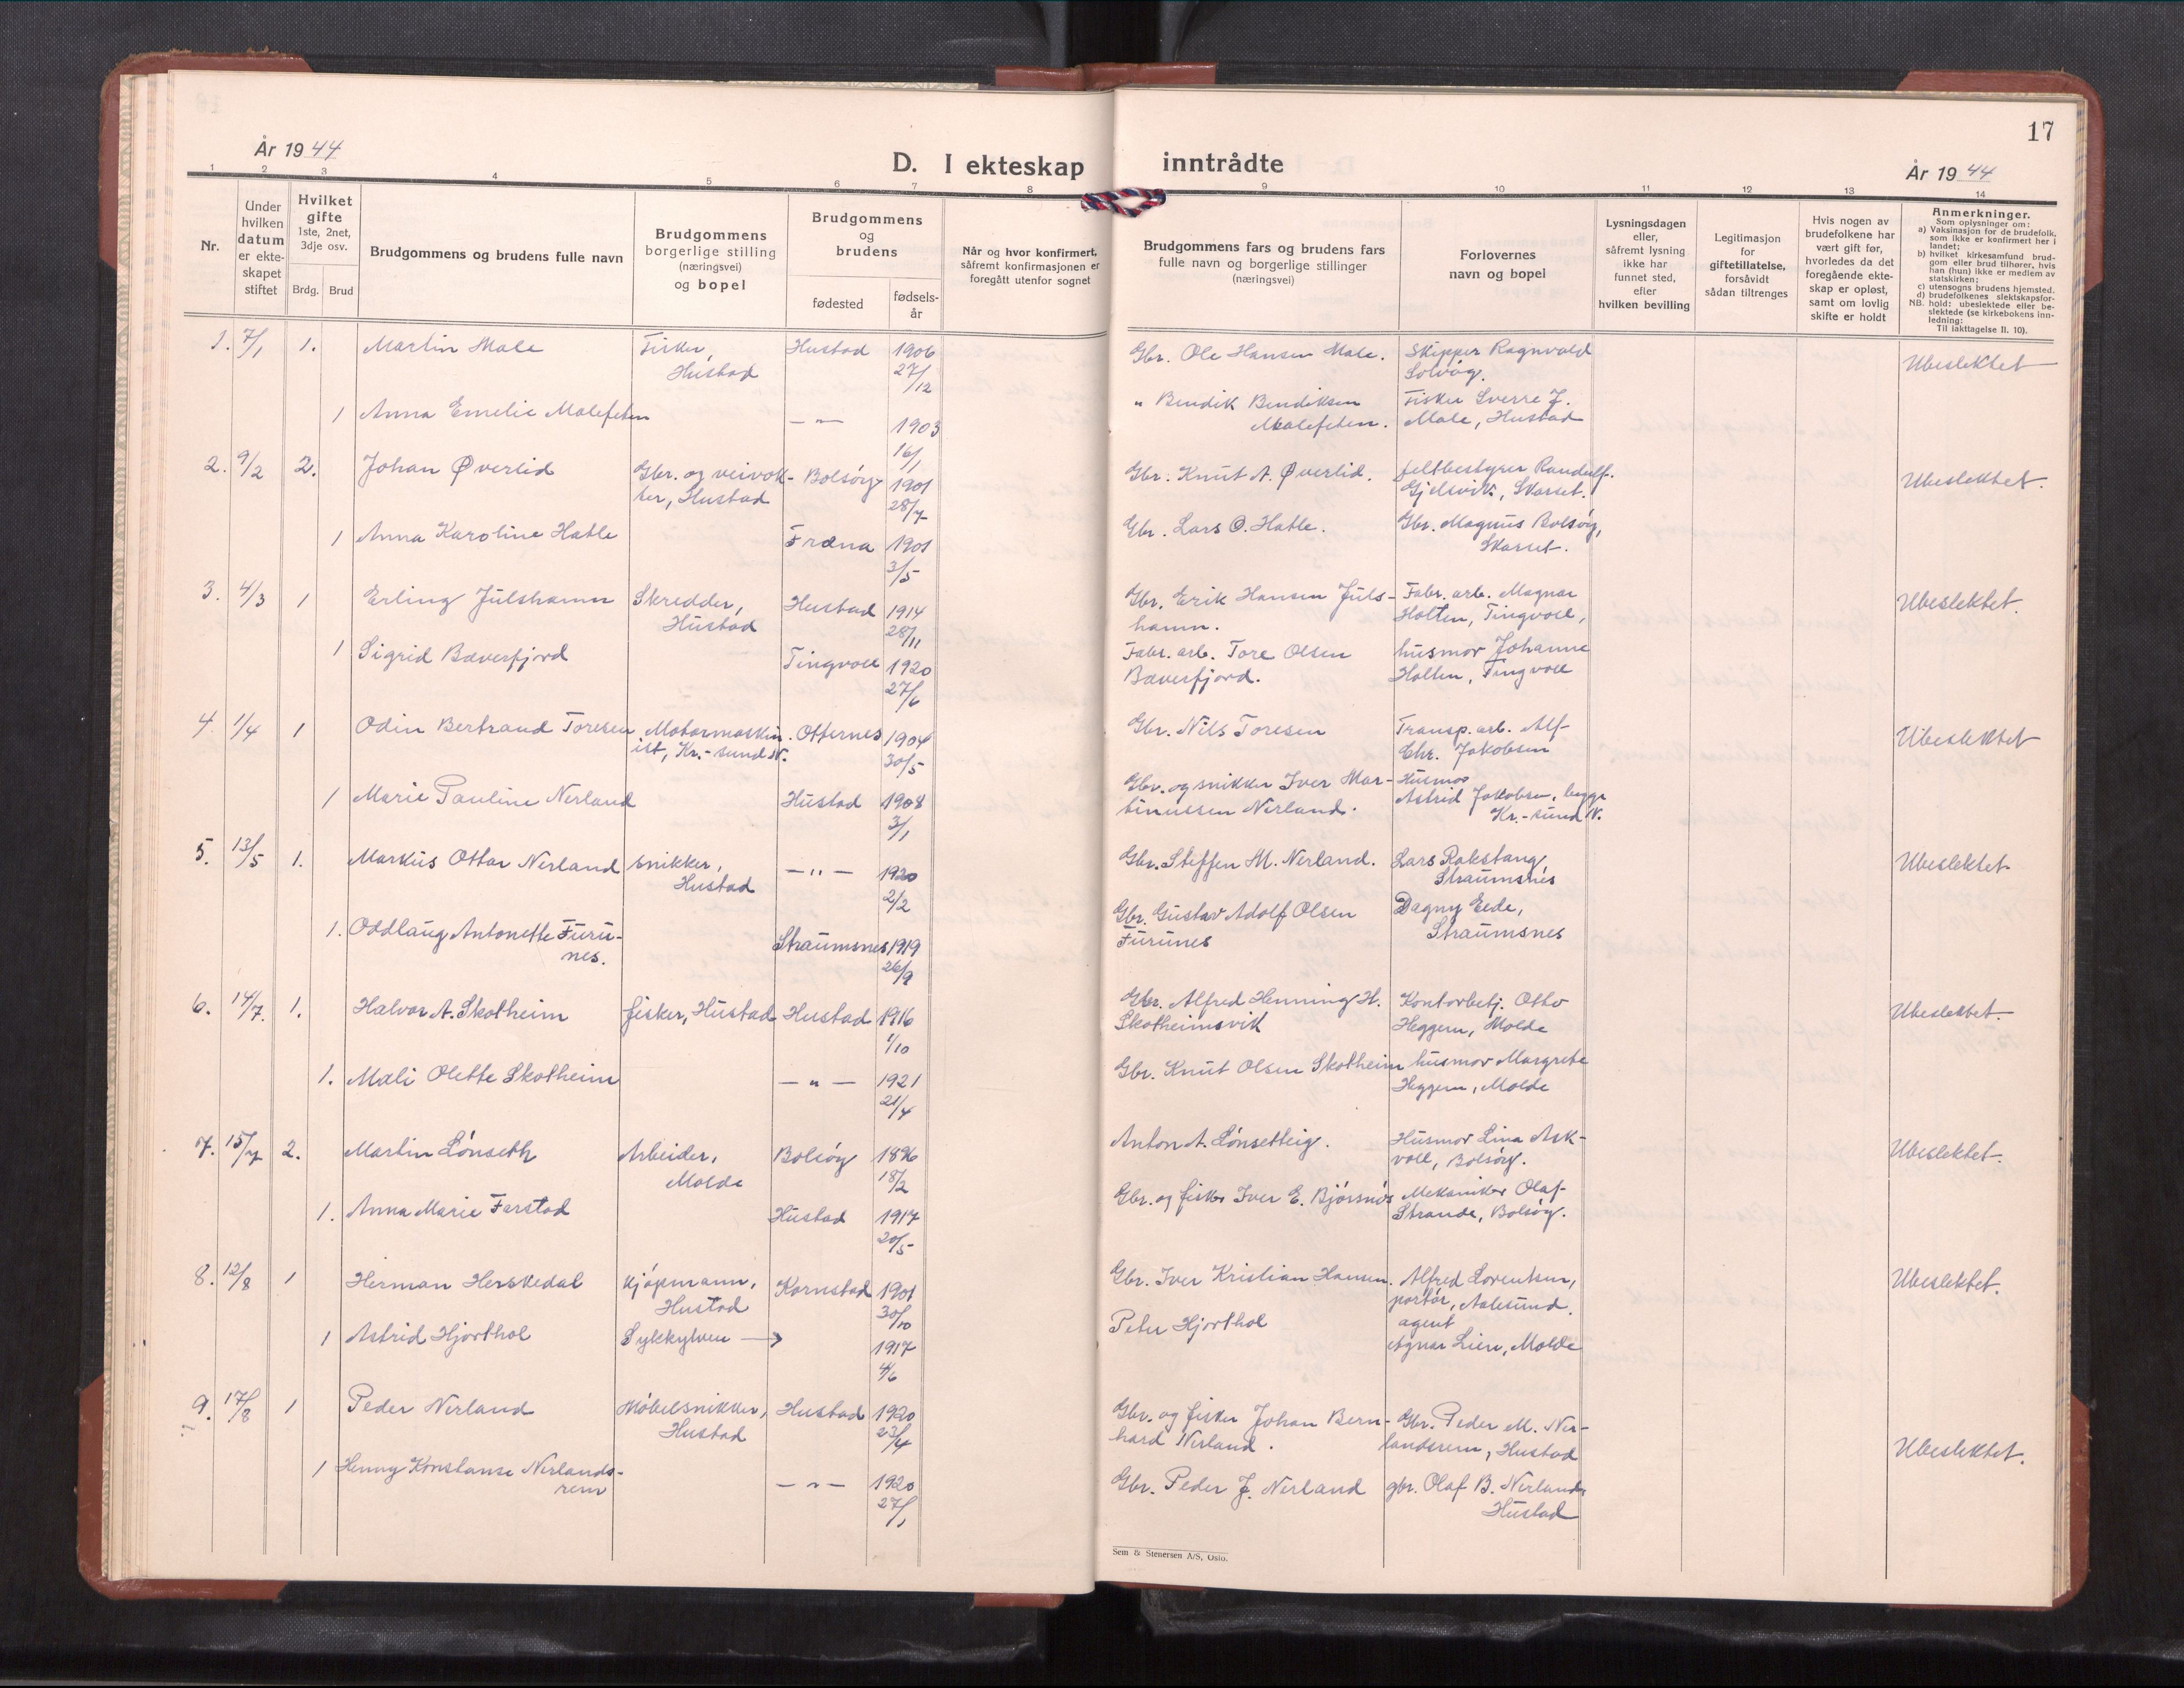 17
År 1944
D. I ekteskap inntrådte
År 1944
1 2 3 4 5 6 7 8 9 10 11 12 13 14
Nr.
Under hvilken datum er ekteskapet stiftet
Hvilket gifte 1ste, 2net, 3dje osv.
Brdg. Brud
Brudgommens og brudens fulle navn
Brudgommens borgerlige stilling (næringsvei) og bopel
Brudgommens og brudens
fødested
fødsels-år
Når og hvor konfirmert, såfremt konfirmasjonen er foregått utenfor sognet
Brudgommens fars og brudens fars fulle navn og borgerlige stillinger (næringsvei)
Forlovernes navn og bopel
Lysningsdagen eller, såfremt lysning ikke har funnet sted, efter hvilken bevilling
Legitimasjon for giftetillatelse, forsåvidt sådan tiltrenges
Hvis nogen av brudefolkene har vært gift før, hvorledes da det foregående ekteskap er opløst, samt om lovlig skifte er holdt
Anmerkninger.
Som oplysninger om:
a) Vaksinasjon for de brudefolk, som ikke er konfirmert her i landet;
b) hvilket kirkesamfund brudgom eller brud tilhører, hvis han (hun) ikke er medlem av statskirken;
c) utensogns brudens hjemsted.
d) brudefolkenes slektskapsforhold: ubeslektede eller beslektede (se kirkebokens innledning:
NB. Til iakttagelse II. 10).
1. 7/1 1. Martin Male Fisker, Hustad Hustad 1906 27/12 Gbr. Ole Hansen Male. Skipper Ragnvald Solvåg. Ubeslektet
1 Anna Emelie Malefeten — " — 1903 16/1 " Bendik Bendiksen Malefeten. Fisker Sverre J. Male, Hustad
2. 9/2 2. Johan Øverlid Gbr. og veivokter, Hustad Bolsøy 1901 28/7 Gbr. Knut A. Øverlid. feltbestyrer Randulf Gjelsvik, Skarset. Ubeslektet.
1 Anna Karoline Hatle Fræna 1901 3/5 Gbr. Lars O. Hatle. Gbr. Magnus Bolsøy, Skarset.
3. 4/3 1 Erling Julshamn Skredder, Hustad Hustad 1914 28/11 Gbr. Erik Hansen Julshamn. Fabr. arb. Magnar Holten, Tingvoll, Ubeslektet.
1 Sigrid Bæverfjord Tingvoll 1920 27/6 Fabr. arb. Tore Olsen Bæverfjord. husmor Johanne Holten, Tingvoll
4. 1/4 1 Odin Bertrand Toresen Motormaskinist, Kr.-sund N. Otternes 1904 30/5 Gbr. Nils Toresen Transp. arb. Alf Chr. Jakobsen Ubeslektet
1 Marie Pauline Nerland Hustad 1908 3/1 Gbr. og snikker Iver Martinussen Nerland. Husmor Astrid Jakobsen, begge Kr.-sund N.
5. 13/5 1. Markus Ottar Nerland snikker, Hustad — " — 1920 2/2 Gbr. Steffen M. Nerland. Lars Rakstang, Straumsnes Ubeslektet
1. Oddlaug Antonette Furunes. Straumsnes 1919 26/9 Gbr. Gustav Adolf Olsen Furunes Dagny Eede, Straumsnes
6. 14/7. 1. Halvor A. Skotheim fisker, Hustad Hustad 1916 1/10 Gbr. Alfred Henning H. Skotheimsvik Kontorbetj. Otto Heggem, Molde Ubeslektet.
1. Mali Olette Skotheim — " — 1921 21/4 Gbr. Knut Olsen Skotheim husmor Margrete Heggem, Molde
7. 15/7 2. Martin Lönseth Arbeider, Molde Bolsöy 1896 18/2 Anton A. Lönsetteig. Husmor Lina Askvoll, Bolsöy. Ubeslektet.
1. Anna Marie Farstad Hustad 1917 20/5 Gbr. og fisker Iver E. Bjørsnøs Mekaniker Olaf Strande, Bolsöy.
8. 12/8 1 Herman Herskedal kjöpmann, Hustad Kornstad 1901 30/10 Gbr. Iver Kristian Hansen. Alfred Lorentsen, portör, Aalesund. Ubeslektet.
1 Astrid Hjorthol Sykkylven → 1917 4/6 Peter Hjorthol agent Agnar Lien, Molde
9. 17/8 1 Peder Nerland Möbelsnikker, Hustad Hustad 1920 23/4 Gbr. og fisker Johan Bernhard Nerland. Gbr. Peder M. Nerlandsrem, Hustad Ubeslektet.
1 Henny Konstanse Nerlandsrem — " — 1920 27/1 Gbr. Peder J. Nerland gbr. Olaf B. Nerland Hustad
Sem & Stenersen A/S, Oslo.